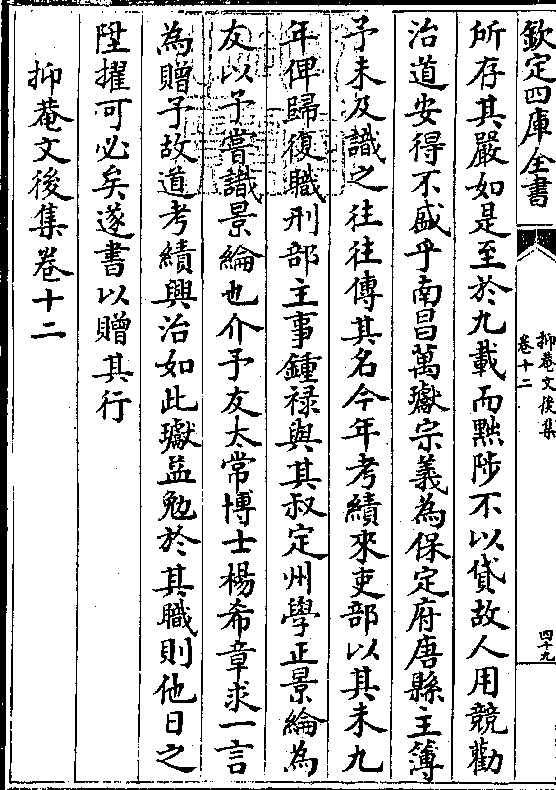 欽定四庫全書
抑菴文後集
卷十二
四十九
所存其嚴如是至於九載而黜陟不以貸故人用競勸
治道安得不盛乎南昌萬瓛宗義為保定府唐縣主簿
予未及識之往往傳其名今年考績來吏部以其未九
年俾歸復職刑部主事鍾祿與其叔定州學正景綸為
友以予嘗識景綸也介予友太常博士楊希章求一言
為贈予故道考績興治如此瓛益勉於其職則他日之
陞擢可必矣遂書以贈其行
抑菴文後集卷十二